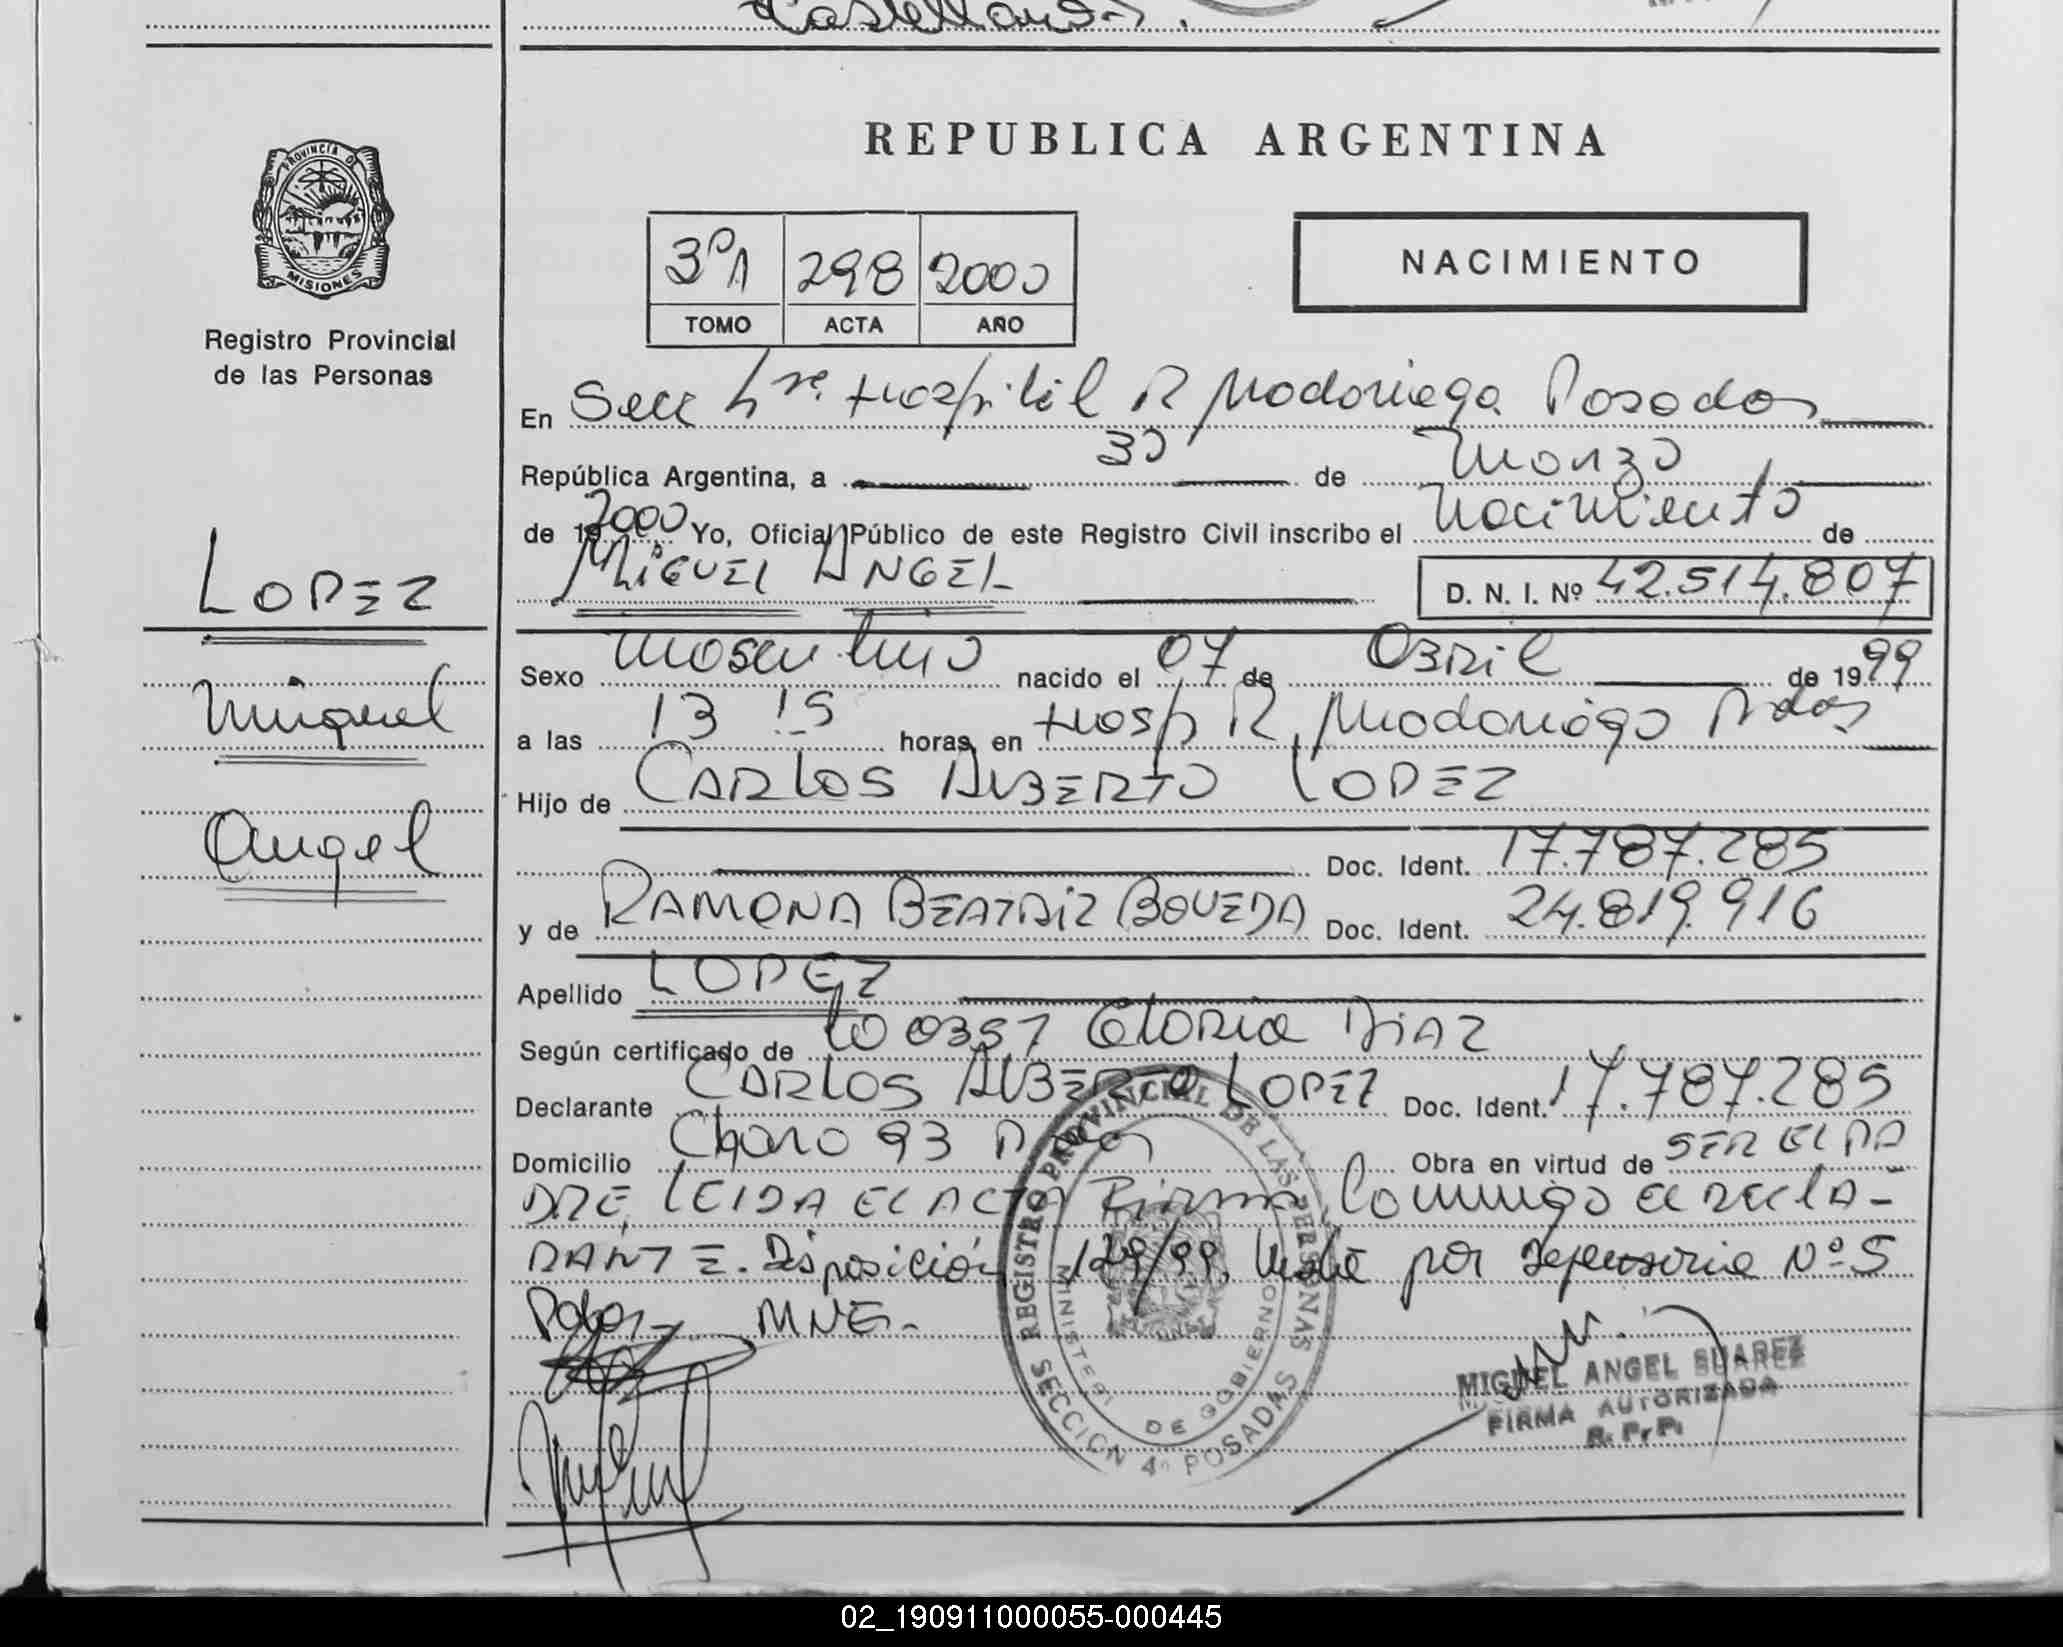 Castellano.
REPUBLICA ARGENTINA
PROVINCIA DE
MISIONES
Registro Provincial
de las Personas
3º A 298 2000
TOMO ACTA AÑO
NACIMIENTO
En Secc Hospital R Madariaga Posadas
República Argentina, a 30 de Marzo
de 19 2000 Yo, Oficial Público de este Registro Civil inscribo el Nacimiento de
MIGUEL ANGEL D. N. I. Nº 42.514.807
LOPEZ
Miguel
Angel
Sexo Masculino nacido el 07 de Abril de 1999
a las 13 15 horas, en Hosp R. Madariaga Pdas
Hijo de CARLOS ALBERTO LOPEZ
Doc. Ident. 17.787.285
y de RAMONA BEATRIZ BOVEDA Doc. Ident. 24.819.916
Apellido LOPEZ
Según certificado de 00357 Gloria DIAZ
Declarante CARLOS ALBERTO LOPEZ Doc. Ident. 17.787.285
Domicilio Charo 93 Obra en virtud de SER EL PA
DRE, LEIDA EL ACTA Firma Conmigo el DECLA-
RANTE. Disposición 129/99, por Defensoria Nº 5
Pdas. MNE.
REGISTRO PROVINCIAL DE LAS PERSONAS
MINISTERI DE GOBIERNO
SECCION 4ª POSADAS
MIGUEL ANGEL SUAREZ
FIRMA AUTORIZADA
R. P. P.
02_190911000055-000445